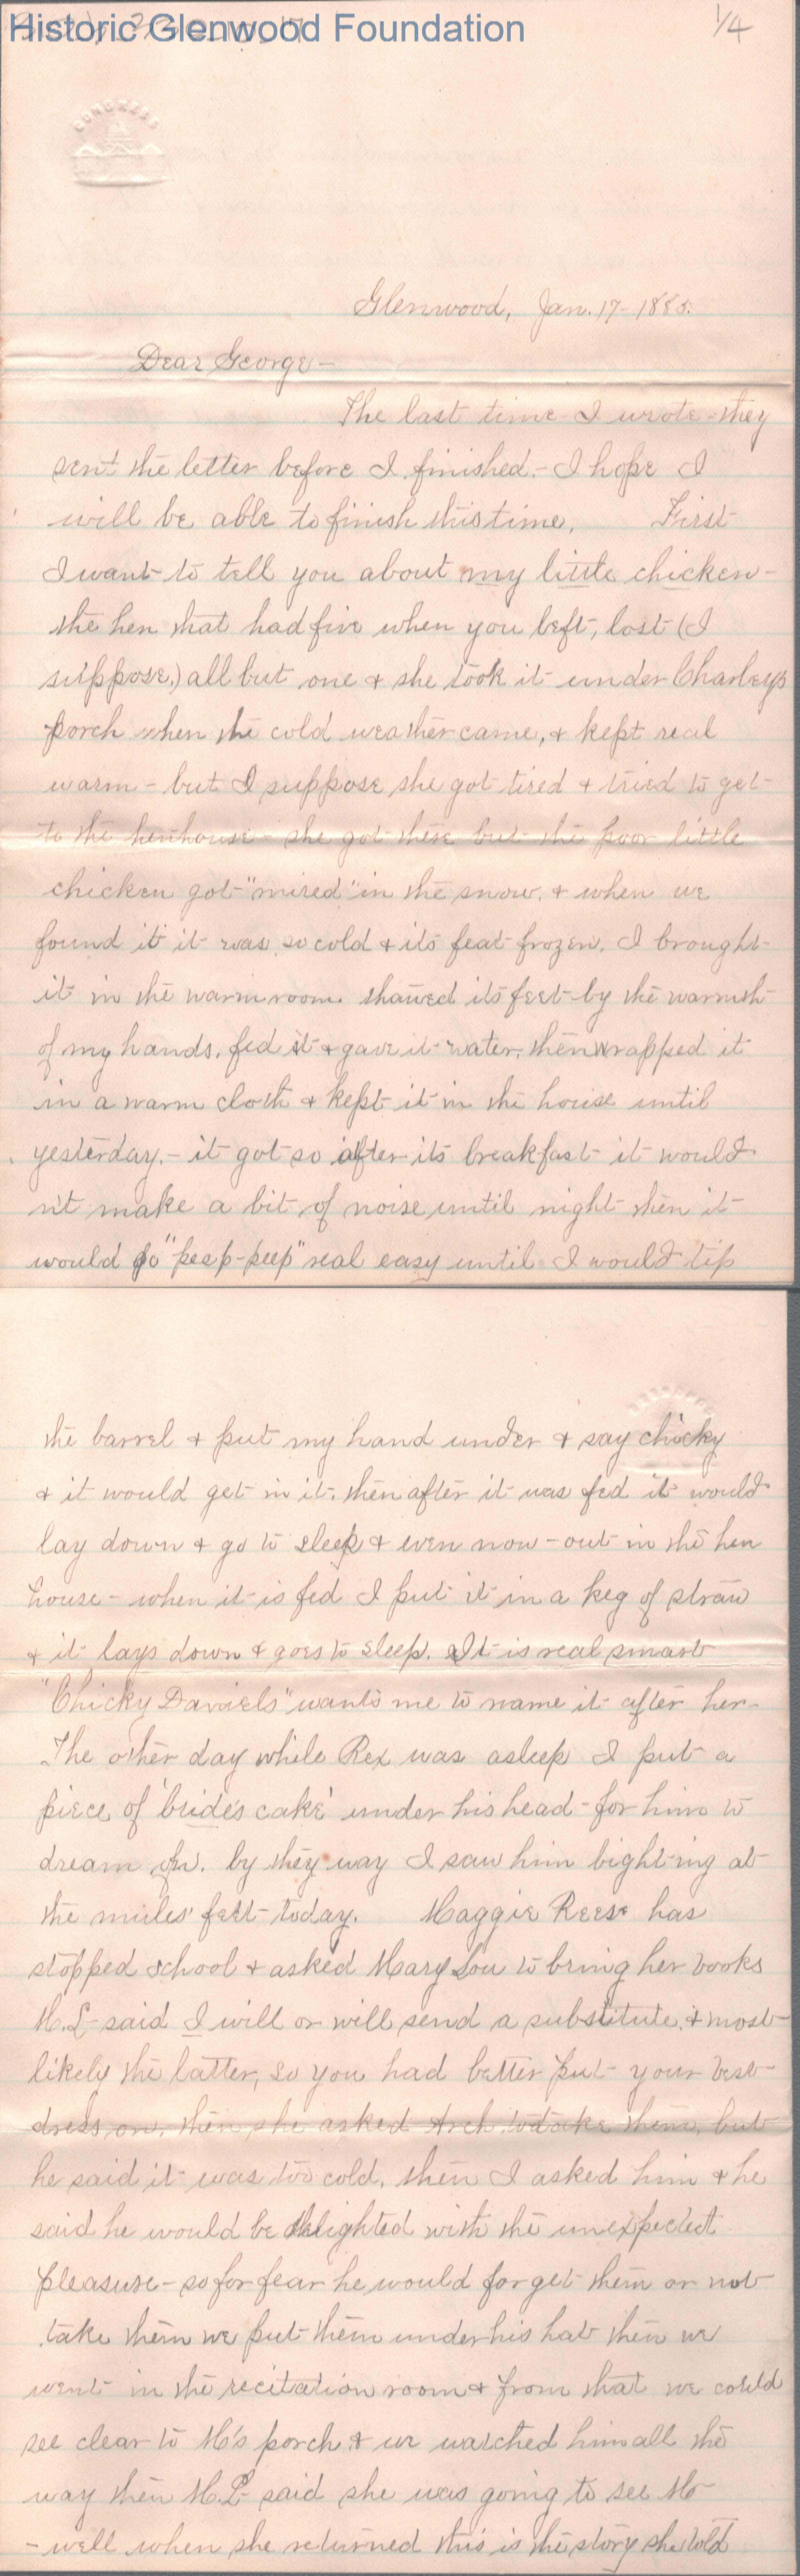 Historic Glenwood Foundation
1/4
CONGRESS
Glenwood, Jan. 17- 1885.
Dear George-
The last time I wrote-they
sent the letter before I finished.- I hope I
will be able to finish this time. First
I want to tell you about my little chicken-
the hen that had five when you left, lost (I
suppose,) all but one & she took it under Charley's
porch when the cold weather came, & kept real
warm - but I suppose she got tired & tried to get
to the henhouse - she got there but the poor little
chicken got "mired" in the snow, & when we
found it it was so cold & its feat frozen. I brought
it in the warm room thawed its feet by the warmth
of my hands, fed it & gave it water, then wrapped it
in a warm cloth & kept it in the house until
yesterday.- it got so after its breakfast it would
n't make a bit of noise until night when it
would go "peep-peep" real easy until I would tip
the barrel & put my hand under & say chicky
& it would get in it. then after it was fed it would
lay down & go to sleep & even now - out in the hen
house - when it is fed I put it in a keg of straw
& it lays down & goes to sleep. It is real smart
"Chicky Daniels" wants me to name it after her-
The other day while Rex was asleep I put a
piece of 'bride's cake' under his head - for him to
dream on. by they way I saw him bighting at
the mules' feet today. Maggie Reese has
stopped school & asked Mary Lou to bring her books
M.L said I will or will send a substitute, & most
likely the latter, so you had better put your best
dress on, then she asked Arch to take them, but
he said it was too cold, then I asked him & he
said he would be delighted with the unexpected
pleasure - so for fear he would forget them or not
take them we put them under his hat then we
went in the recitation room & from that we could
see clear to M's porch & we watched him all the
way then M.L said she was going to see M-
- well when she returned this is the story she told